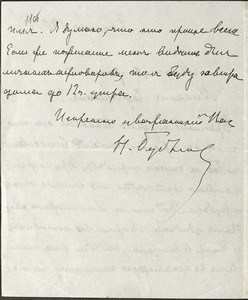 пия. Я думаю, что это проще всего
Если же пожелаете меня видеть для
личных переговоров, то я буду завтра
дома до 12 ч. утра.
Искренно уважающий Вас
Н.